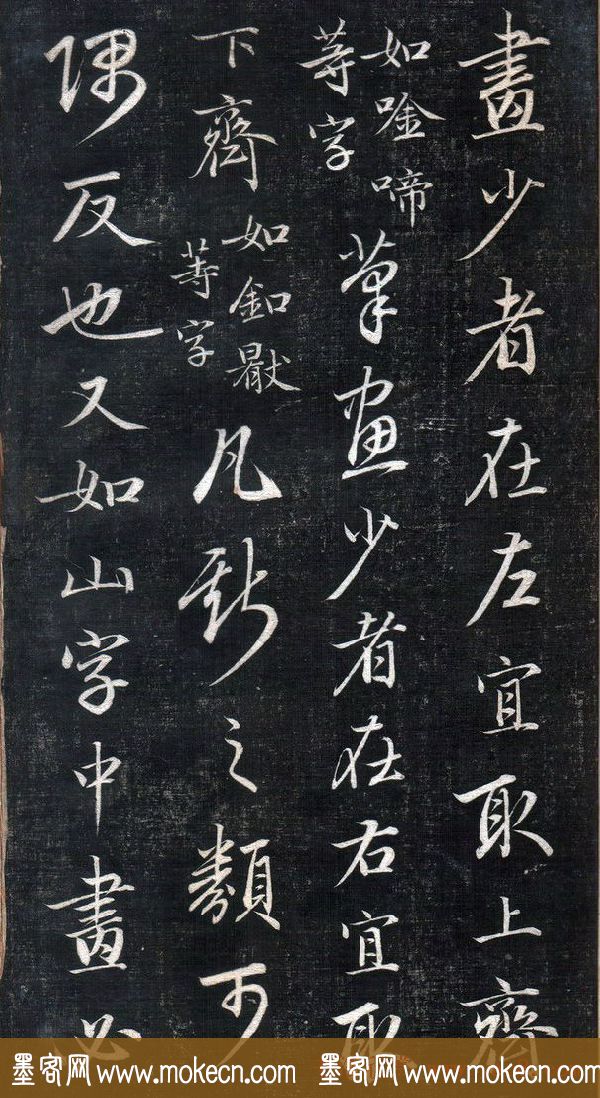 畫少者在左宜取上齊
如唫啼
等字
筆画少者在右宜取
下齊
如釦
等字
凡斯之類可
隅反也又如山字中畫必
墨客网 www.mokecn.com 墨客网 www.mokecn.com